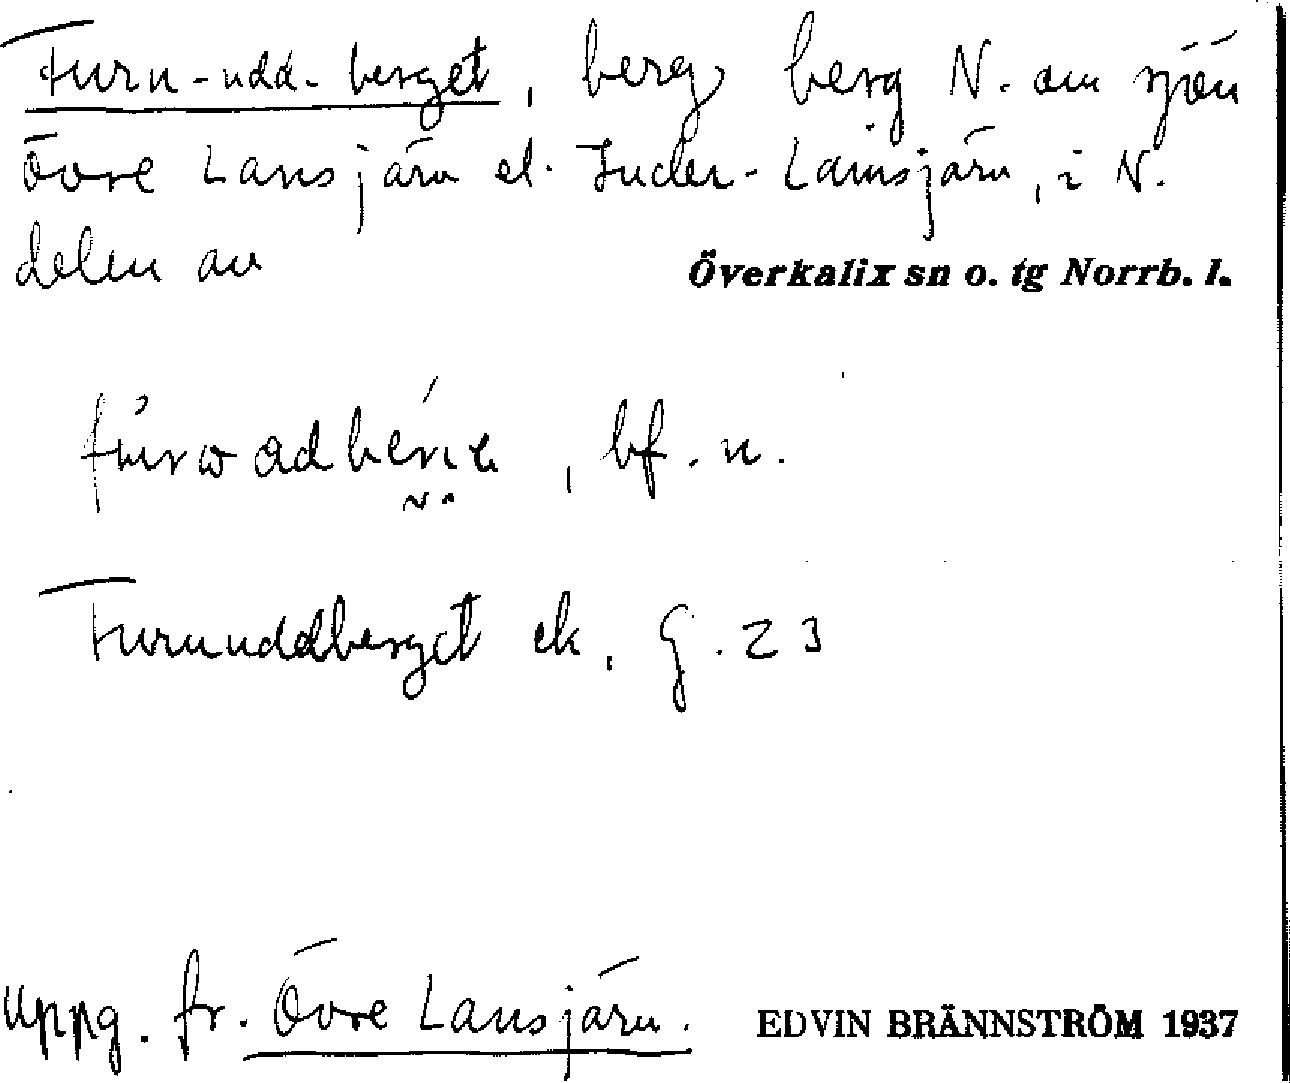 Furu-udd-berget, berg berg N. om sjön
Övre Lansjärv el. Inder-Lansjärv, i N.
delen av
Överkalix sn o. tg Norrb. l.
, bf. n.
Furuuddberget ek. G. 23
uppg. fr. Övre Lansjärv.
EDVIN BRÄNNSTRÖM 1937